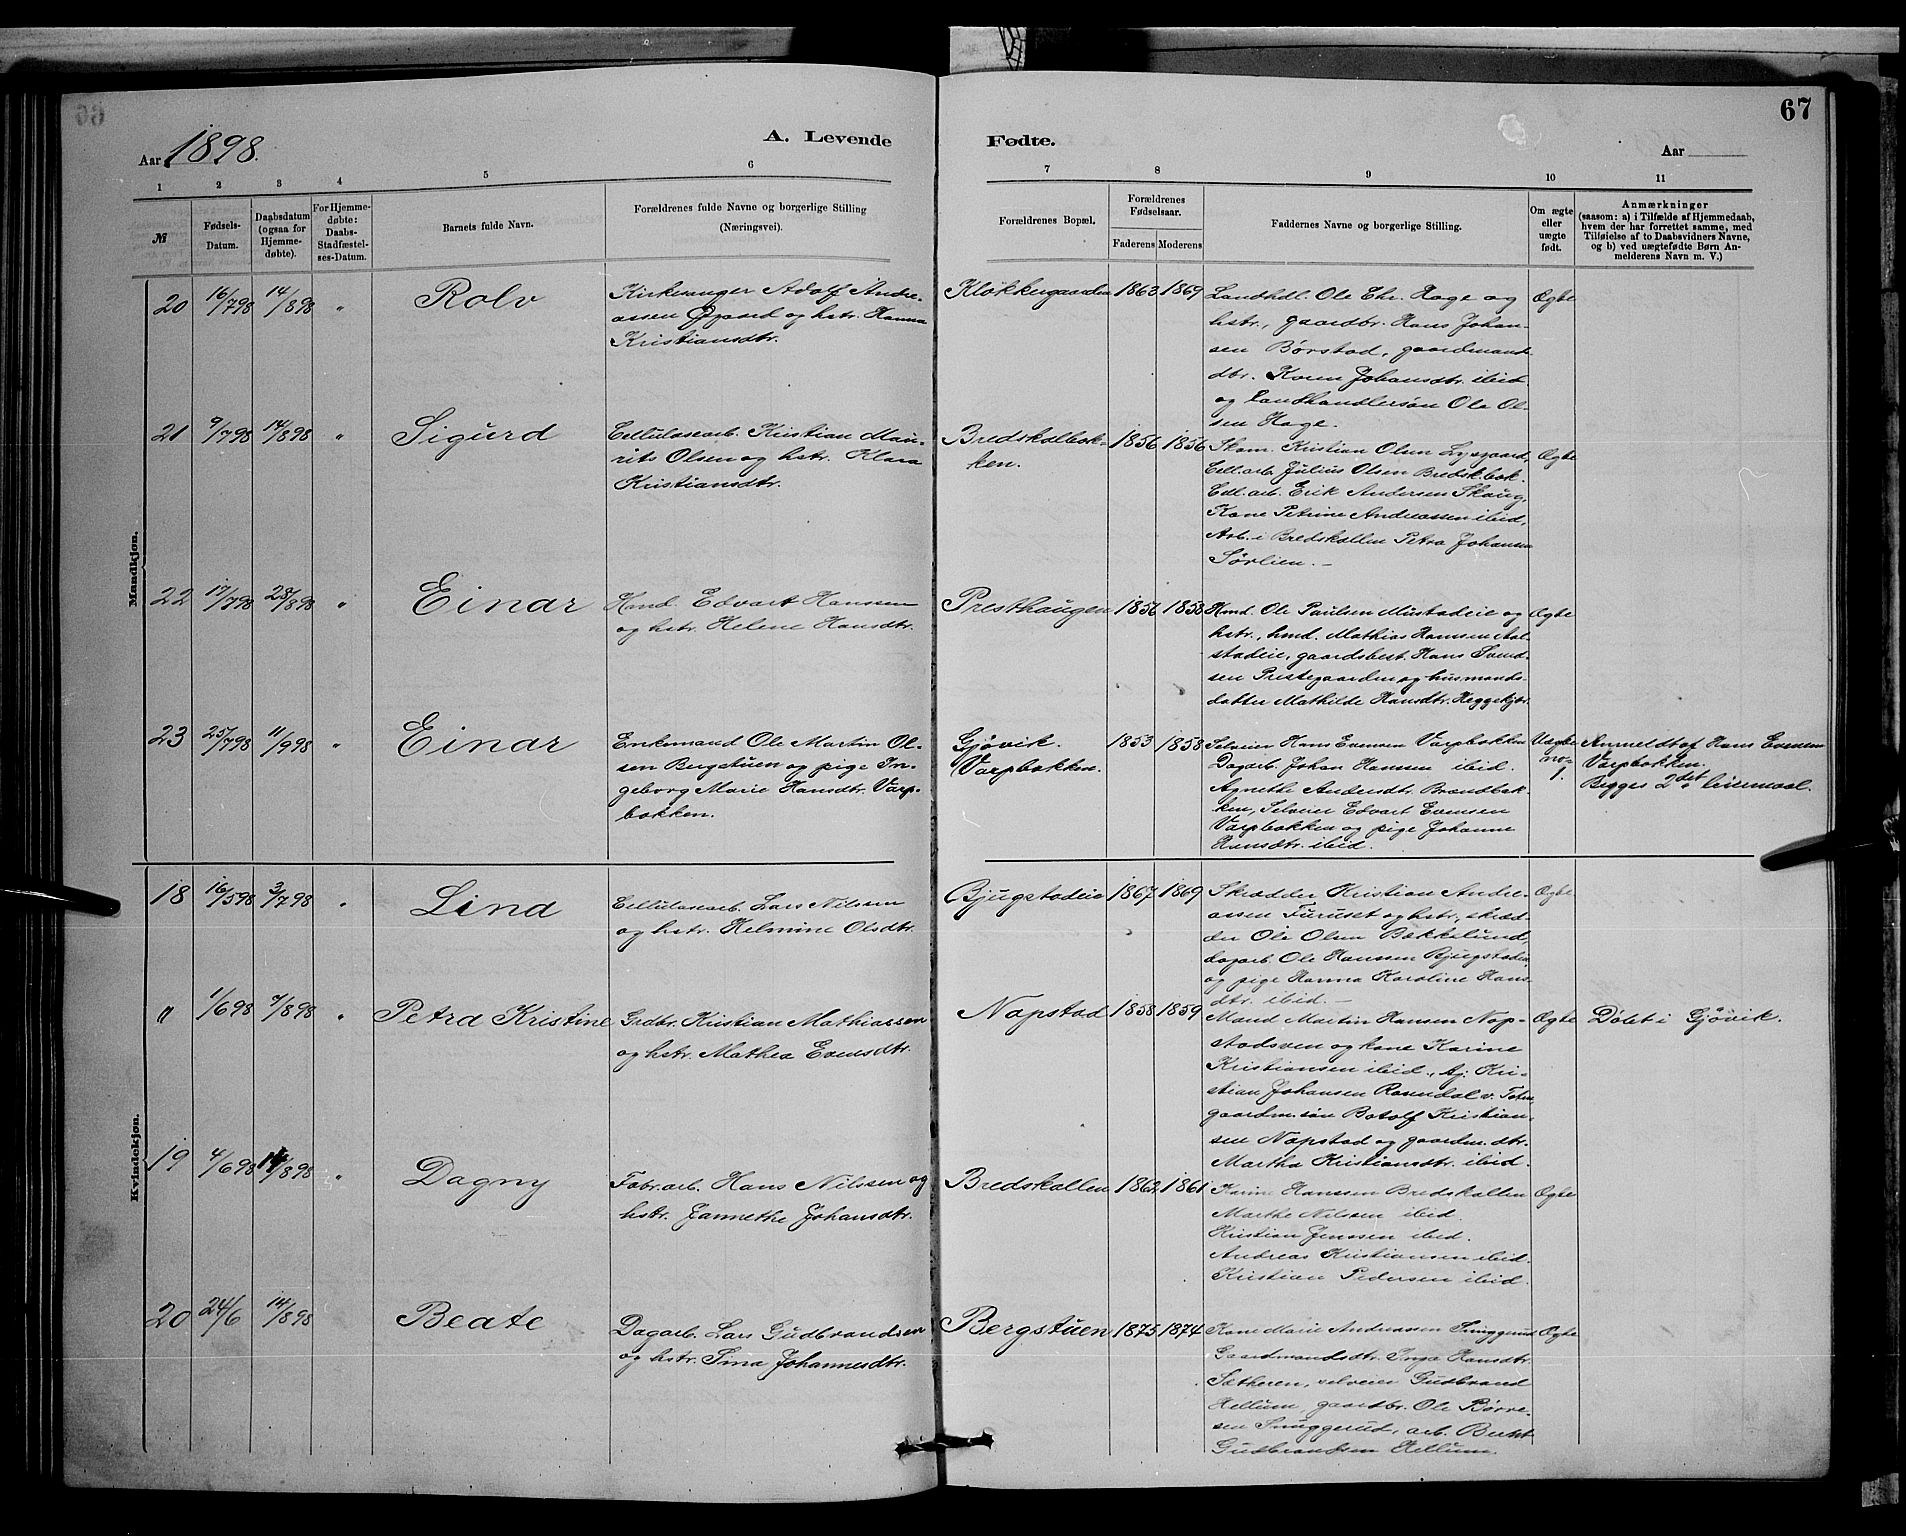 67
A. Levende Fødte.
Aar 1898.
Aar
1 2 3 4 5 6 7 8 9 10 11
№
Fødsels-
Datum.
Daabsdatum
(ogsaa for
Hjemme-
døbte).
For Hjemme-
døbte:
Daabs-
Stadfæstel-
ses-Datum.
Barnets fulde Navn.
Forældrenes fulde Navne og borgerlige Stilling
(Næringsvei).
Forældrenes Bopæl.
Forældrenes
Fødselsaar.
Faderens Moderens
Faddernes Navne og borgerlige Stilling.
Om ægte
eller
uægte
født.
Anmærkninger
(saasom: a) i Tilfælde af Hjemmedaab,
hvem der har forrettet samme, med
Tilføielse af to Daabsvidners Navne,
og b) ved uægtefødte Børn An-
melderens Navn m. V.)
Mandkjøn.
20 16/798 14/898 " Rolv
Kirkesanger Adolf Andre-
assen Øgaard og hstr. Hanna
Kristiansdtr.
Kløkkergaarden 1863 1869
Landhdl. Ole Chr. Hage og
hstr., gaardbr. Hans Johan-
sen Børstad, gaardmands
dtr. Karen Johansdtr. ibid
og Landhandlersøn Ole Ol-
sen Hage.
Ægte
21 9/798 14/898 " Sigurd
Cellulosearb. Kristian Mau-
rits Olsen og hstr. Klara
Kristiansdtr.
Bredskalbak-
ken.
1856 1856
Skom. Kristian Olsen Lysgaard,
Cell.arb. Julius Olsen Bredsk.bak.
Cell.arb. Erik Andersen Skaug,
Kone Petrine Andreassen ibid,
Arb. i Bredskallen Petra Johansen
Sørlien. –
Ægte
22 17/798 28/898 " Einar
Hmd. Edvart Hanssen
og hstr. Helene Hansdtr.
Presthaugen 1856 1858
Hmd. Ole Paulsen Mustadeie og
hstr., hmd. Mathias Hanssen
stadeie, gaardsbest. Hans Svend-
sen Prestegaarden og husmands-
datter Mathilde Hansdtr. Heggekjær.
Ægte
23 25/798 11/998 " Einar
Enkemand Ole Martin Ol-
sen Bergstuen og pige In-
geborg Marie Hansdtr. Varp-
bakken.
Gjøvik.
Varpbakken.
1853 1858
Selveier Hans Evensen Varpbakken
Dagarb. Johan Hanssen ibid.
Agnethe Andersdtr. Brændbak-
ken, Selveier Edvart Evensen
Varpbakken og pige Johanne
Hansdtr. ibid.
Uægte
no
1.
Anmeldt af Hans Evensen
Varpbakken.
Begges 2det leiermaal.
Kvindekjøn.
18 16/598 3/798 " Lina
Cellulosearb. Lars Nilssen
og hstr. Helmine Olsdtr.
Bjugstadeie 1867 1869
Skrædder Kristian Andre-
assen Furuset og hstr., skræd-
der Ole Olsen Bakkelund,
dagarb. Ole Hanssen Bjugstadeie
og pige Hanna Karoline Hans-
dtr. ibid. –
Ægte
" 1/698 7/898 " Petra Kristine
Grdbr. Kristian Mathiassen
og hstr. Mathea Evensdtr.
Napstad 1858 1859
Mand Martin Hansen Nap-
stadsven og kone Karine
Kristiansen ibid., Gj. Kri-
stian Johansen Rosendal v. Toten,
gaardm.søn Botolf Kristian-
sen Napstad og gaardm. dtr.
Martha Kristiansdtr. ibid.
Ægte
Døbt i Gjøvik.
19 4/698 14/898 " Dagny
Fabr.arb. Hans Nilssen og
hstr. Jannethe Johansdtr.
Bredskallen 1862 1861
Karine Hanssen Bredskallen
Marthe Nilssen ibid.
Kristian Jenssen ibid.
Andreas Kristiansen ibid.
Kristian Pedersen ibid.
Ægte
20 24/6 14/898 Beate
Dagarb. Lars Gudbrandsen
og hstr. Sina Johannesdtr.
Bergstuen 1875 1874
Kone Marie Andreassen Snuggerud
Gaardmandsdtr. Inga Hansdtr.
Sætheren, selveier Gudbrand
Hellum, gaardbr. Ole Børre-
sen Snuggerud, arb. Bernt
Gudbrandsen Hellum.
Ægte